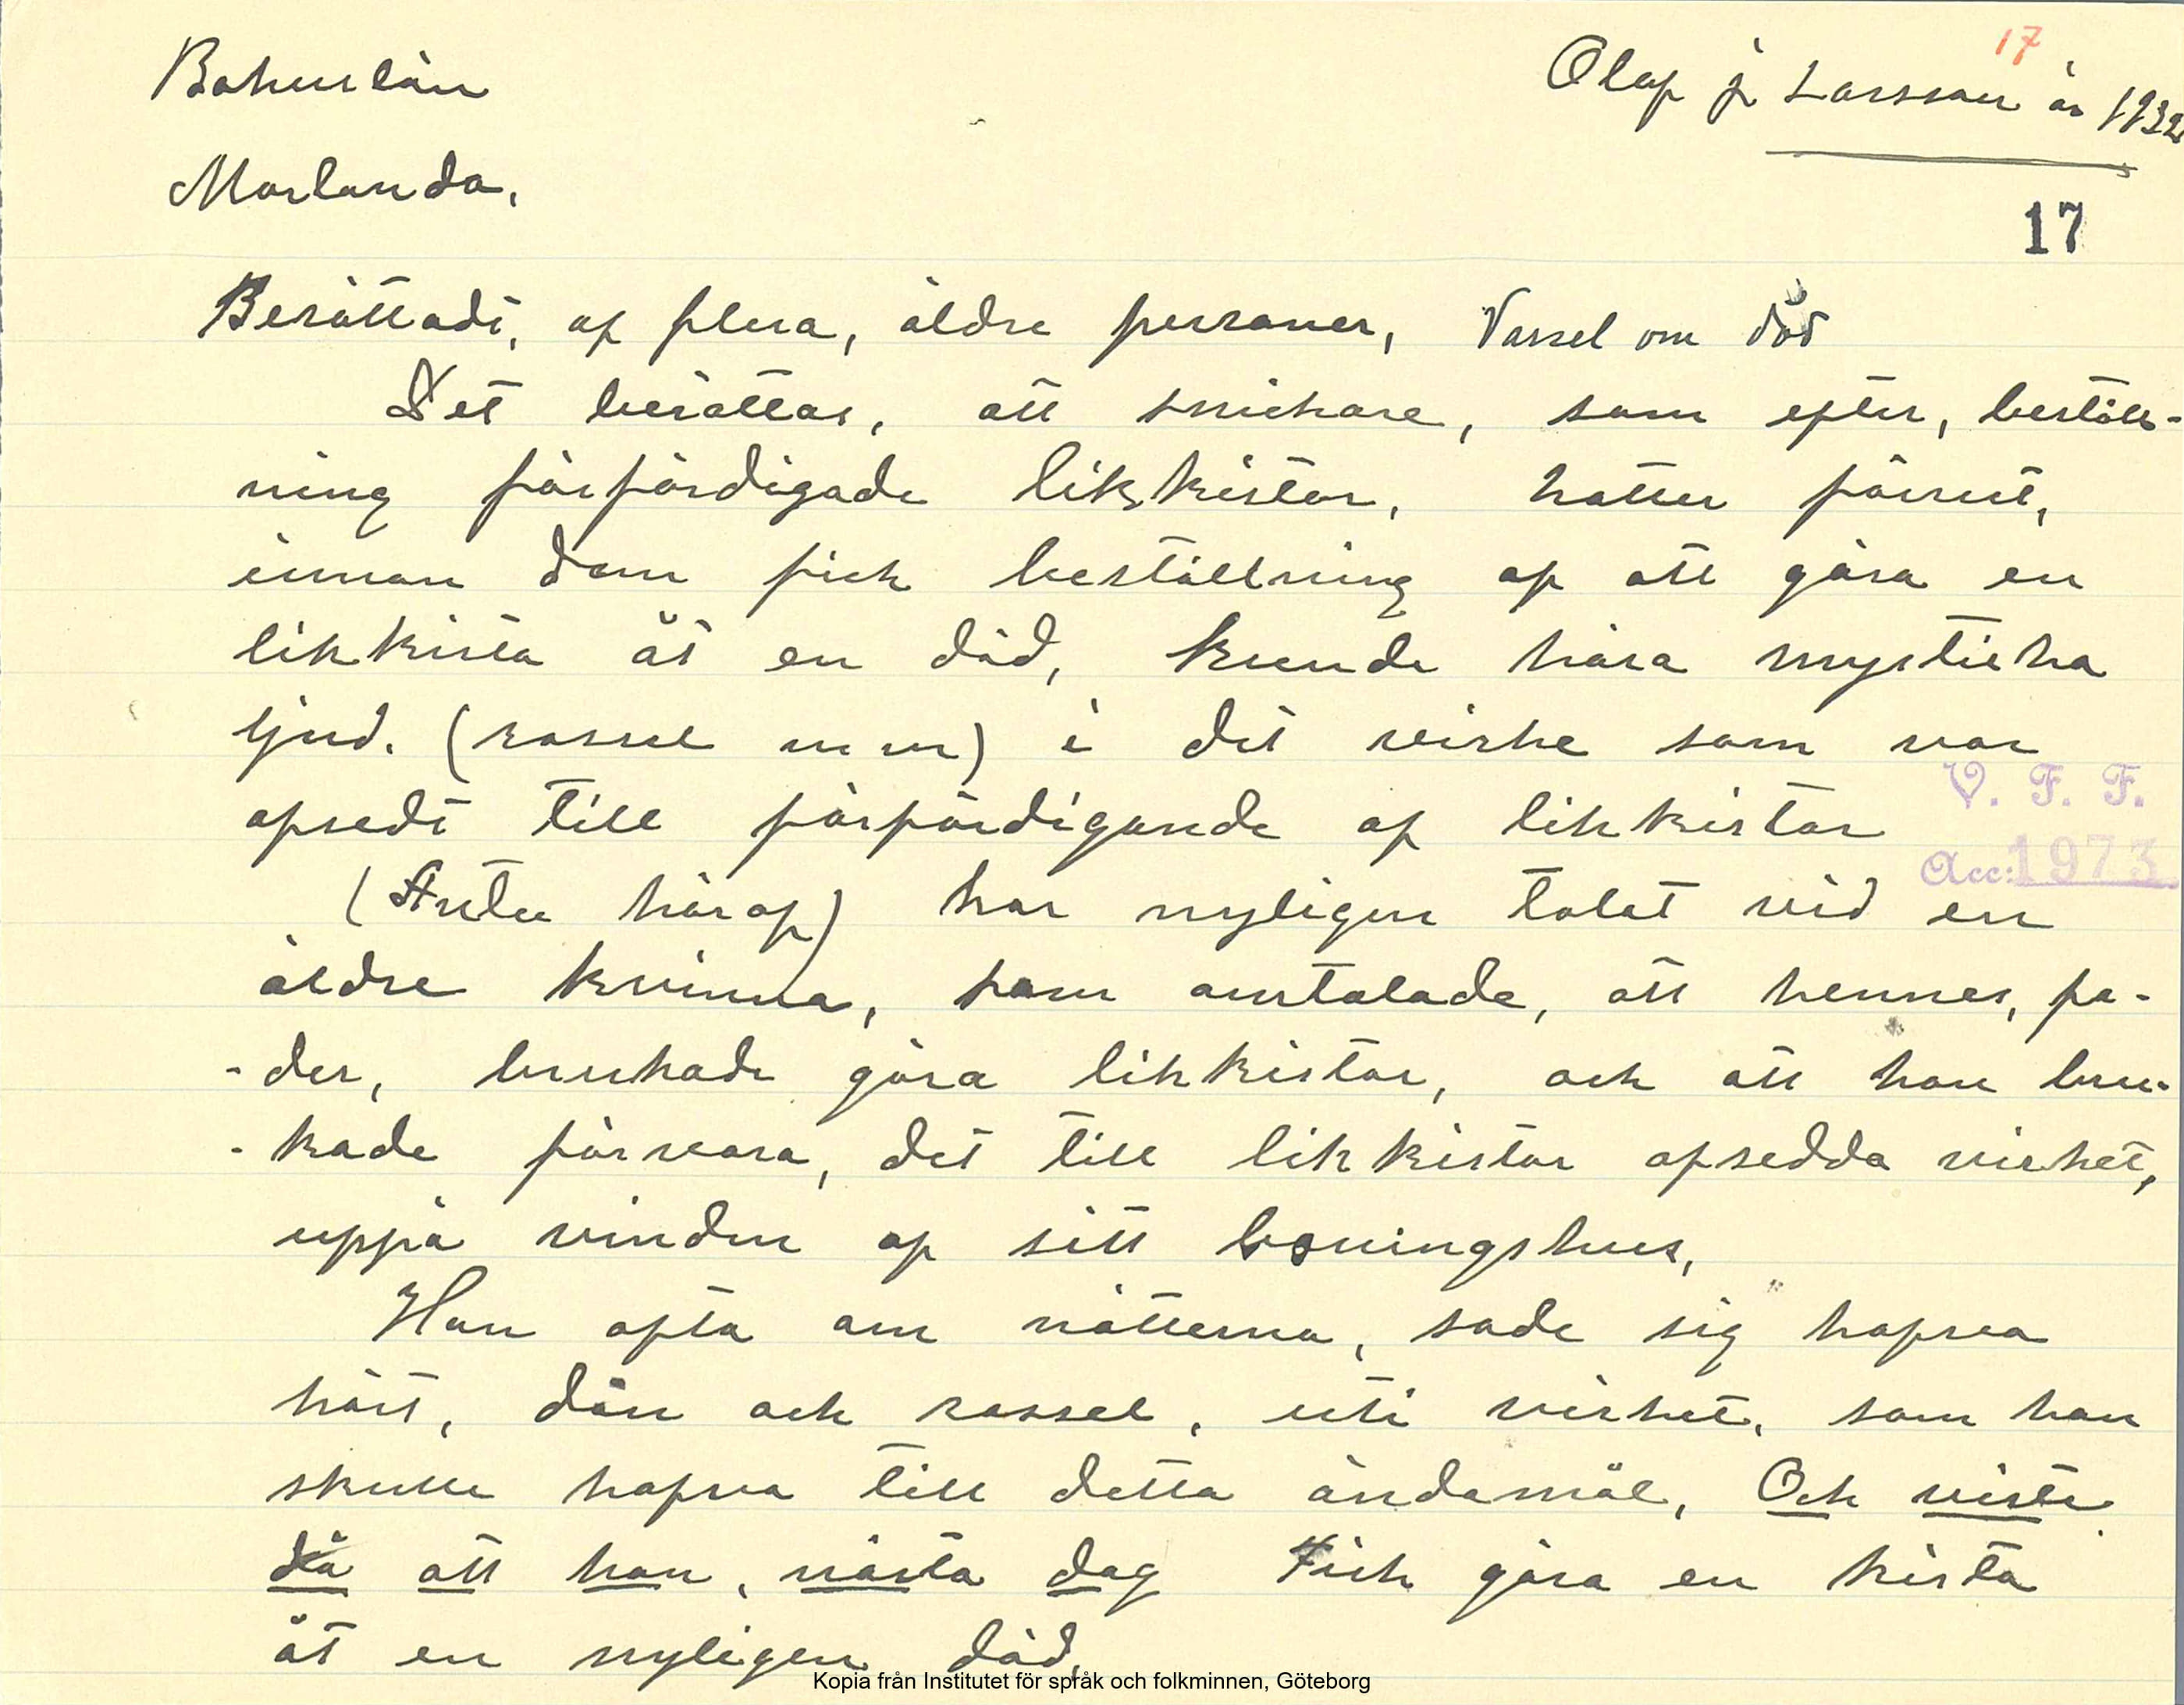 17
Bohuslän
Olaf j Larsson år 1932
Morlanda,
17
Berättadt, af flera, äldre personer, Varsel om död
Det berättas, att snickare, som efter, beställ-
ning förfärdigade likkistor, hatter förrut,
innan dem fick beställning af att göra en
likkista åt en död, kunde höra mysticka
ljud. (rassel m m) i det virke som var
afsedt till förfärdigande af likkistor
V. F. F.
Acc: 1973
(Anter häraf) har nyligen talat vid en
äldre kvinna, som omtalade, att hennes, fa-
-der, brukade göra likkistor, och att han bru-
-kade förvara, det till likkistor afsedda virket,
uppå vinden af sitt boningshus,
Han ofta om nätterna, sade sig hafva
hört, dön och rassel, uti virket, som han
skulle hafva till detta ändamål, Och viste
då att han, nästa dag fick göra en kista
åt en nyligen död,
Kopia från Institutet för språk och folkminnen, Göteborg